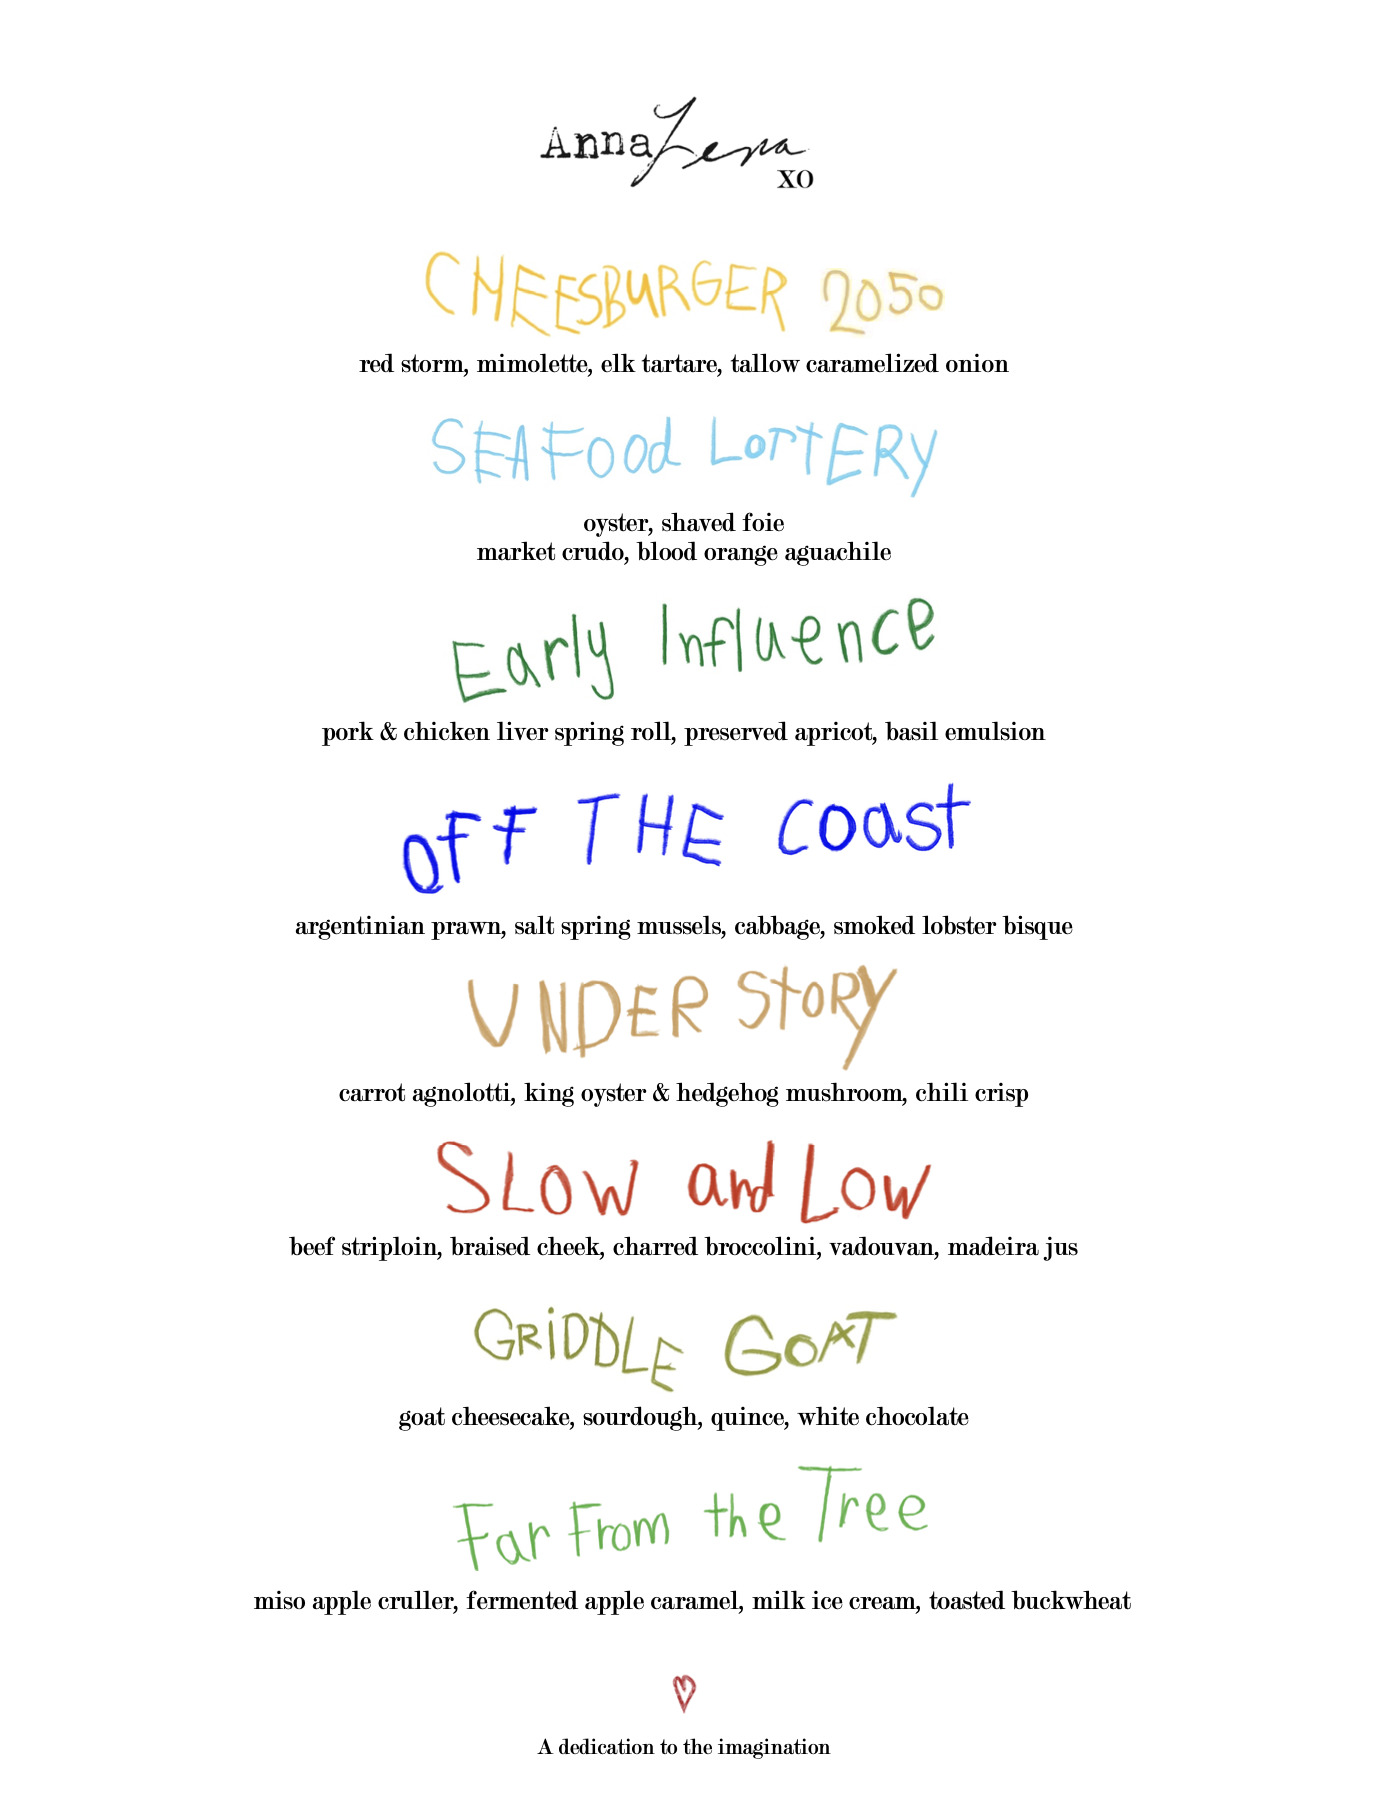 AnnaLena
XO
CHEESBURGER 2050
red storm, mimolette, elk tartare, tallow caramelized onion
SEAFood LorTERY
oyster, shaved foie
market crudo, blood orange aguachile
Early Influence
pork & chicken liver spring roll, preserved apricot, basil emulsion
OFF THE coast
argentinian prawn, salt spring mussels, cabbage, smoked lobster bisque
UNDER StoRY
carrot agnolotti, king oyster & hedgehog mushroom, chili crisp
SLOW and Low
beef striploin, braised cheek, charred broccolini, vadouvan, madeira jus
GRiDDLE GOAT
goat cheesecake, sourdough, quince, white chocolate
Far From the Tree
miso apple cruller, fermented apple caramel, milk ice cream, toasted buckwheat
A dedication to the imagination